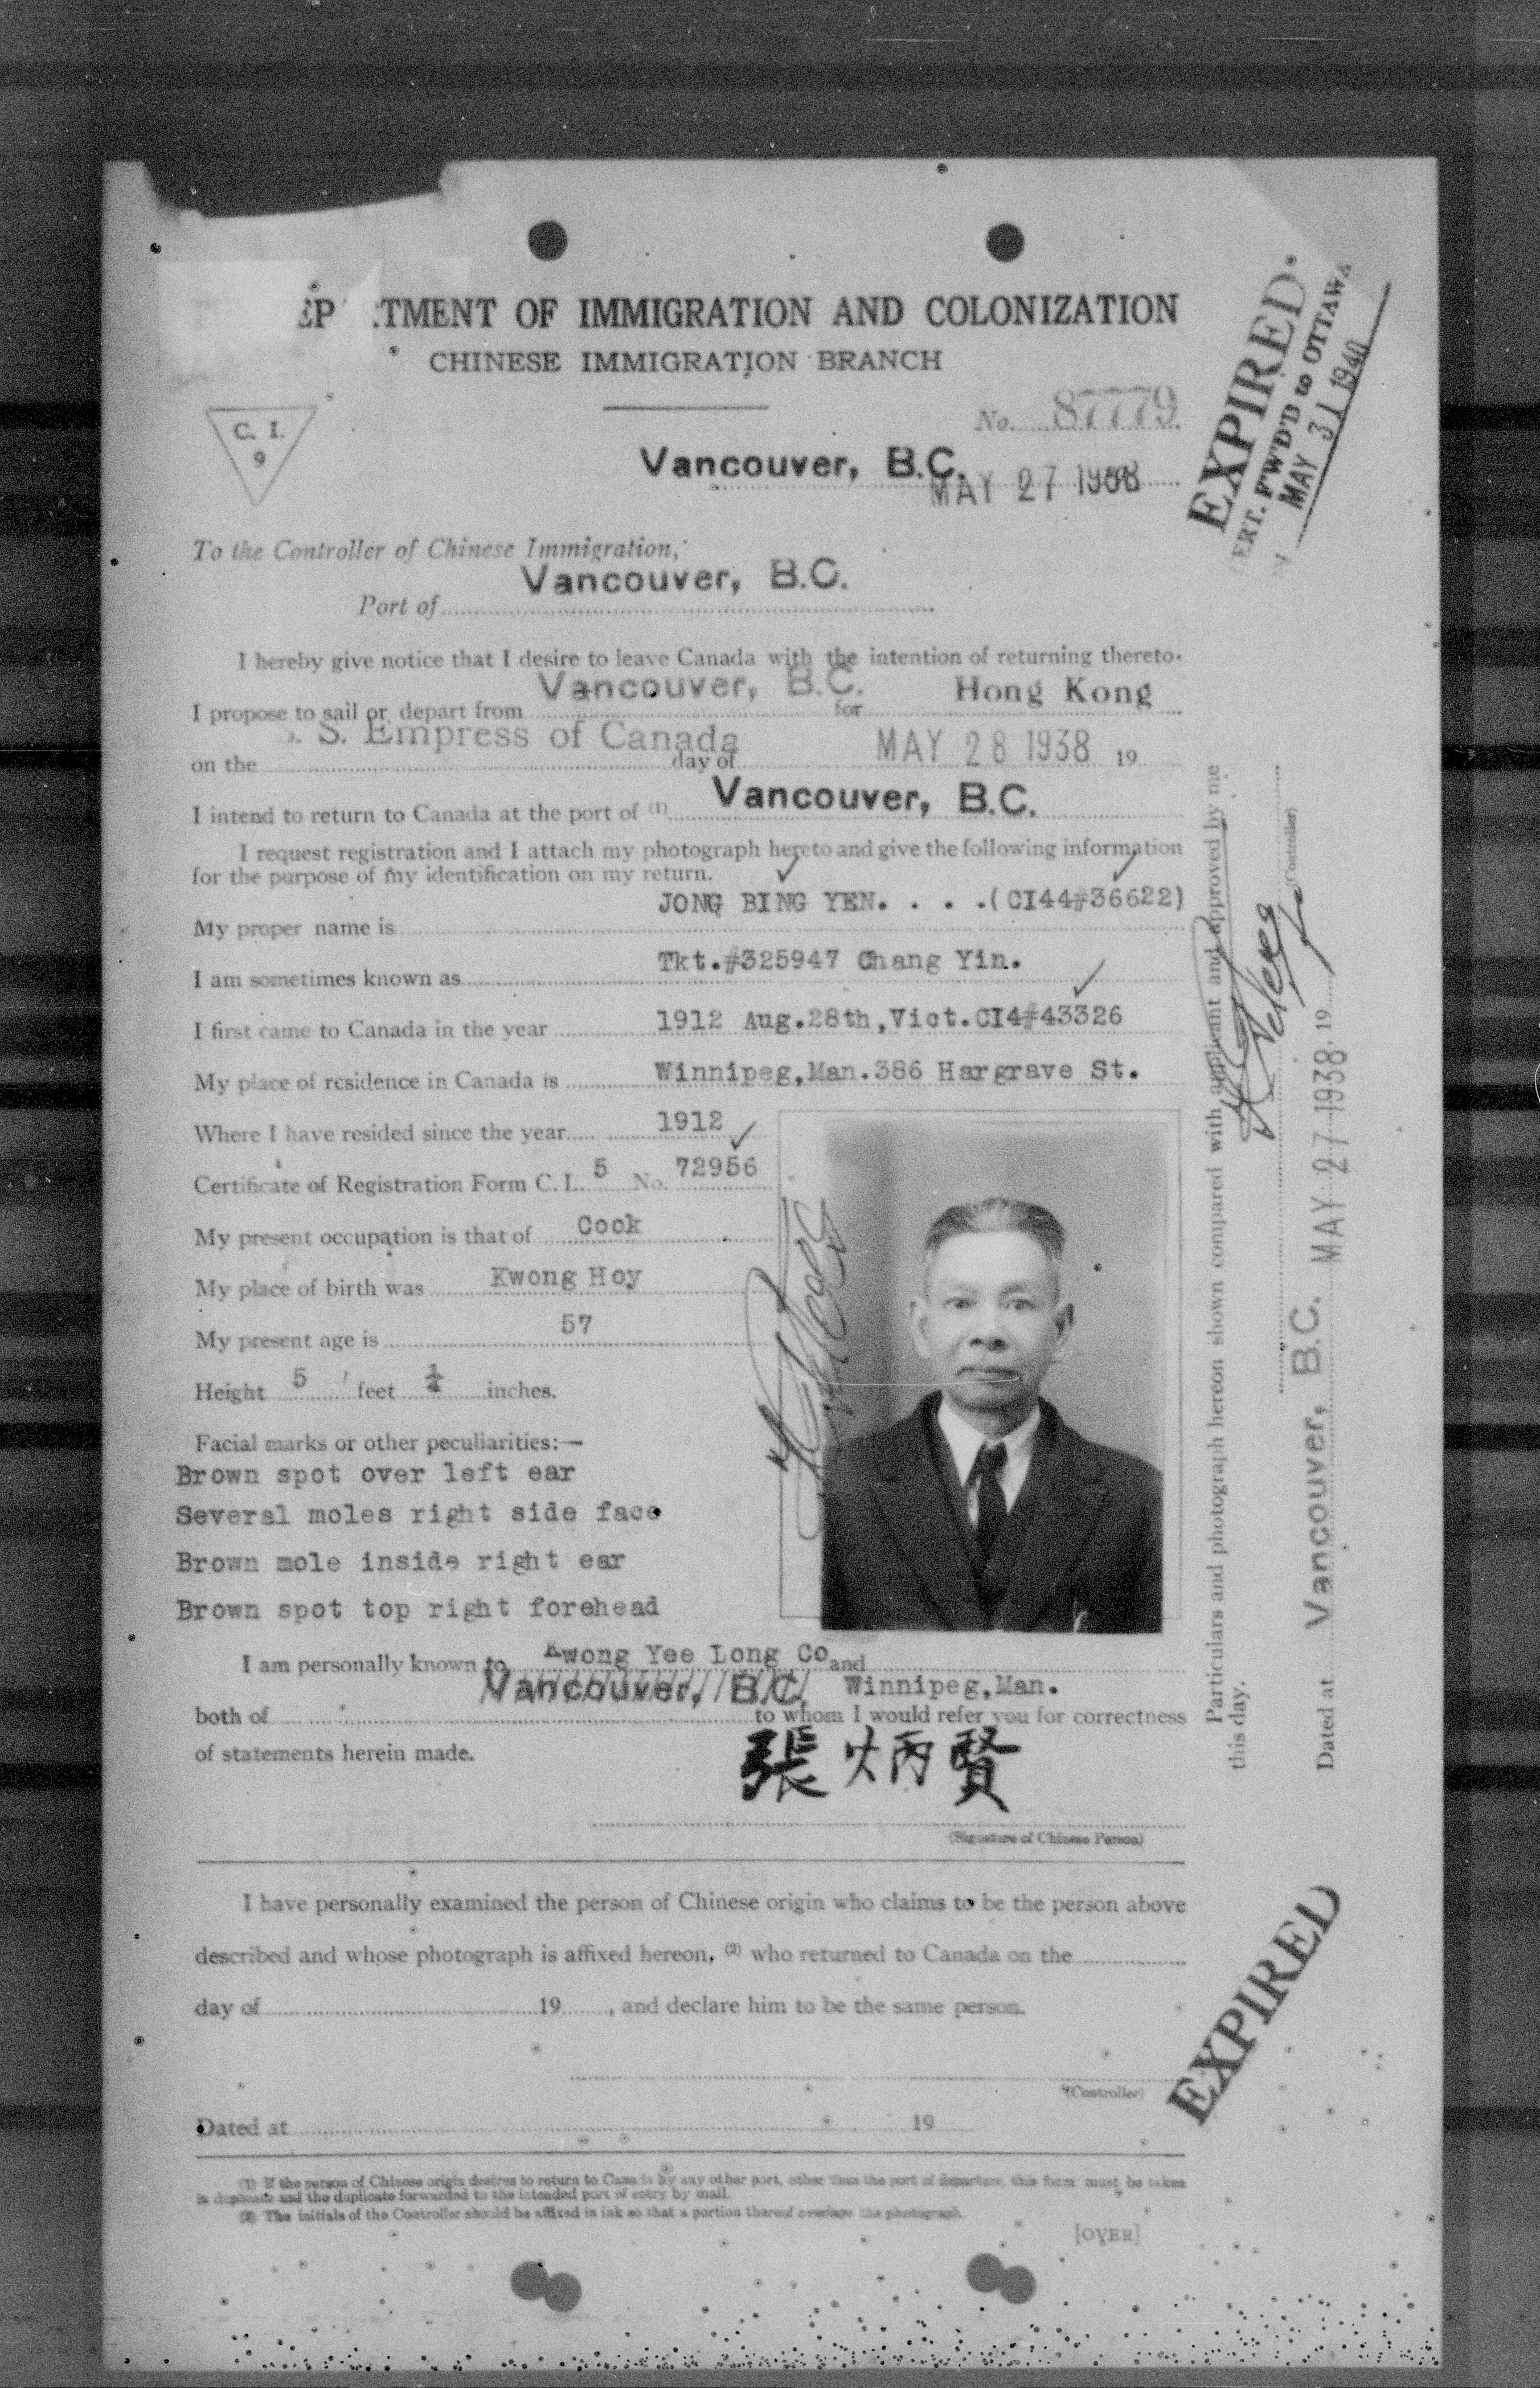 EP TMENT OF IMMIGRATION AND COLONIZATION
CHINESE IMMIGRATION BRANCH
C. I.
9
No. 87779
Vancouver, B.C.
MAY 27 1938
EXPIRED.
ERT. FW'D'D to OTTAWA
MAY 31 1940
To the Controller of Chinese Immigration,
Port of Vancouver, B.C.
I hereby give notice that I desire to leave Canada with the intention of returning thereto.
I propose to sail or depart from Vancouver, B.C. for Hong Kong
S. S. Empress of Canada
on the day of MAY 28 1938 19
I intend to return to Canada at the port of (1) Vancouver, B.C.
I request registration and I attach my photograph hereto and give the following information
for the purpose of my identification on my return.
My proper name is JONG BING YEN. . . .(CI44#36622)
I am sometimes known as Tkt.#325947 Chang Yin.
I first came to Canada in the year 1912 Aug.28th,Vict.CI4#43326
My place of residence in Canada is Winnipeg,Man.386 Hargrave St.
Where I have resided since the year 1912
Certificate of Registration Form C. I. 5 No. 72956
My present occupation is that of Cook
My place of birth was Kwong Hoy
My present age is 57
Height 5 feet ¼ inches.
Facial marks or other peculiarities:—
Brown spot over left ear
Several moles right side face
Brown mole inside right ear
Brown spot top right forehead
I am personally known to Kwong Yee Long Co and
Vancouver, B.C. Winnipeg,Man.
both of to whom I would refer you for correctness
of statements herein made.
張炳賢
(Signature of Chinese Person)
I have personally examined the person of Chinese origin who claims to be the person above
described and whose photograph is affixed hereon, (2) who returned to Canada on the
day of 19 , and declare him to be the same person.
(Controller)
Dated at 19
(1) If the person of Chinese origin desires to return to Canada by any other port, other than the port of departure, this form must be taken
in duplicate and the duplicate forwarded to the intended port of entry by mail.
(2) The initials of the Controller should be affixed in ink so that a portion thereof overlaps the photograph.
[OVER]
Particulars and photograph hereon shown compared with applicant and approved by me
this day.
(Controller)
Dated at Vancouver, B.C. MAY 27 1938 19
EXPIRED